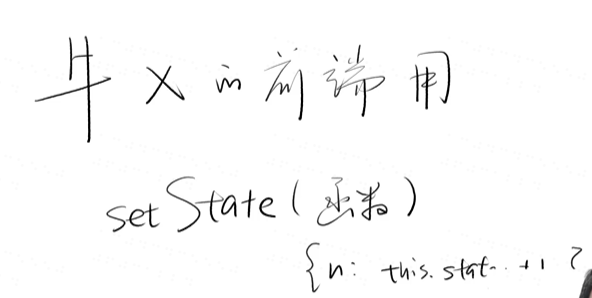 牛X的前端用
setState(函数)
{n: this.stat... +1 }